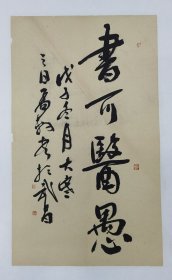 書可醫愚
戊子冬月大寒
三日
於武昌